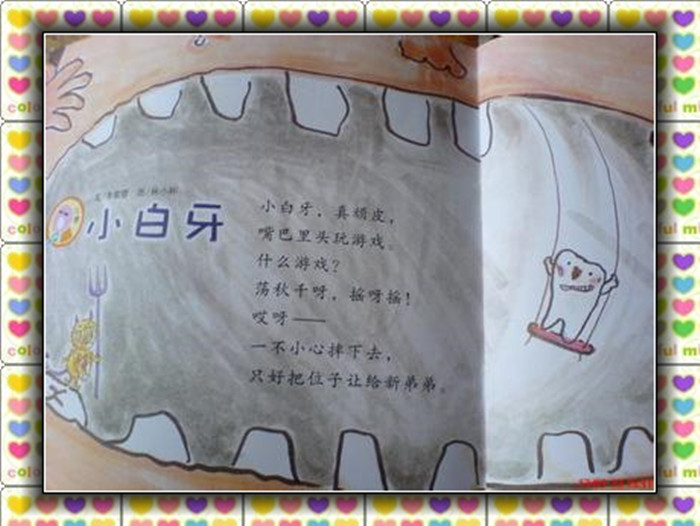 小白牙
小白牙，真顽皮，
嘴巴里头玩游戏。
什么游戏？
荡秋千呀，摇呀摇！
哎呀——
一不小心摔下去，
只好把位子让给新弟弟。